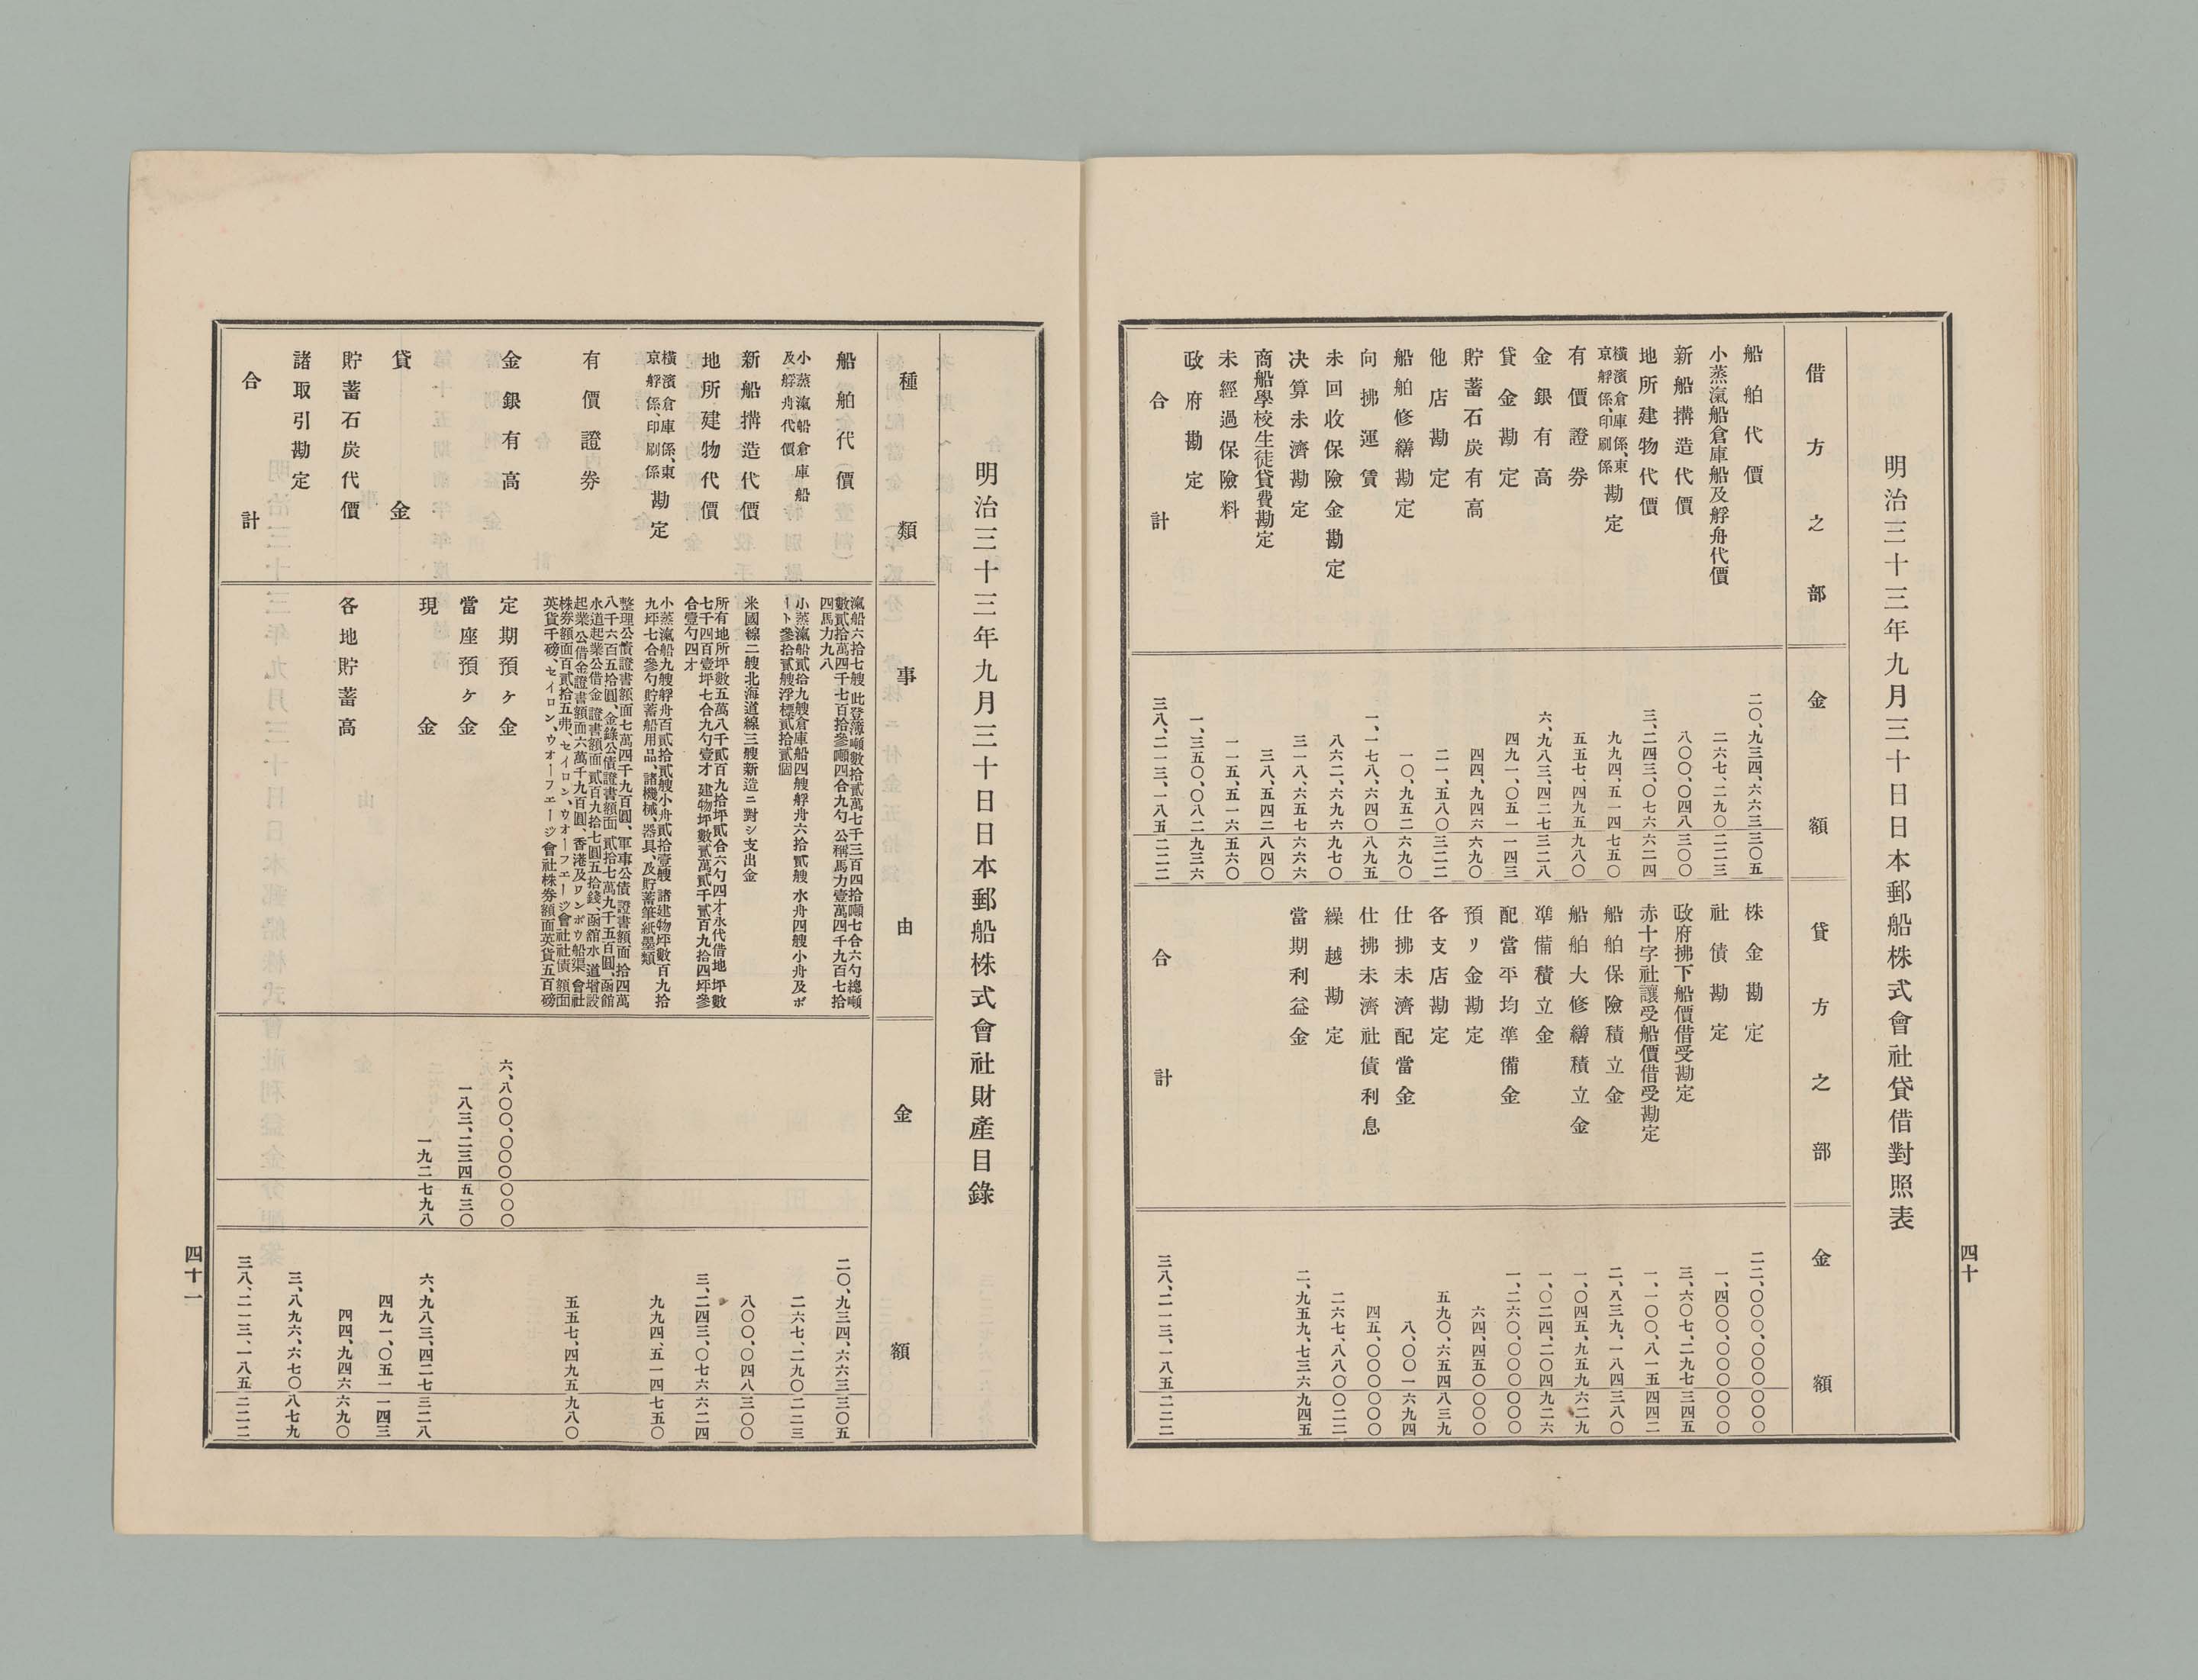 明治三十三年九月三十日日本郵船株式會社貸借對照表
借方之部 金額 貸方之部 金額
船舶代價 二〇、九三四、六六三 三〇五 株金勘定 二二、〇〇〇、〇〇〇 〇〇〇
小蒸滊船倉庫船及艀舟代價 二六七、二九〇 二二三 社債勘定 一、四〇〇、〇〇〇 〇〇〇
新船搆造代價 八〇〇、〇四八 三〇〇 政府拂下船價借受勘定 三、六〇七、二九七 三四五
地所建物代價 三、二四三、〇七六 六二四 赤十字社讓受船價借受勘定 一、一〇〇、八一五 四四二
橫濱倉庫係、東京艀係、印刷係勘定 九九四、五一四 七五〇 船舶保險積立金 二、八三九、一八四 三八〇
有價證券 五五七、四九五 九八〇 船舶大修繕積立金 一、〇四五、九五九 六二九
金銀有高 六、九八三、四二七 三二八 準備積立金 一、〇二四、二〇四 九二六
貸金勘定 四九一、〇五一 一四三 配當平均準備金 一、二六〇、〇〇〇 〇〇〇
貯蓄石炭有高 四四、九四六 六九〇 預リ金勘定 六四、四五〇 〇〇〇
他店勘定 二一、五八〇 三二二 各支店勘定 五九〇、六五四 八三九
船舶修繕勘定 一〇、九五二 六九〇 仕拂未濟配當金 八、〇〇一 六九四
向拂運賃 一、一七八、六四〇 八九五 仕拂未濟社債利息 四五、〇〇〇 〇〇〇
未回收保險金勘定 八六二、六九六 九七〇 繰越勘定 二六七、八八〇 〇二二
決算未濟勘定 三一八、六五七 六六六 當期利益金 二、九五九、七三六 九四五
商船學校生徒貸費勘定 三八、五四二 八四〇
未經過保險料 一一五、五一六 五六〇
政府勘定 一、三五〇、〇八二 九三六
合計 三八、二一三、一八五 二二二 合計 三八、二一三、一八五 二二二
四十
明治三十三年九月三十日日本郵船株式會社財產目錄
種類 事由 金額
船舶代價 滊船六拾七艘 此登簿噸數拾貳萬七千三百四拾噸七合六勺總噸
數貳拾萬四千七百拾參噸四合九勺 公稱馬力壹萬四千九百七拾
四馬力九八 二〇、九三四、六六三 三〇五
小蒸滊船倉庫船及艀舟代價 小蒸滊船貳拾九艘倉庫船四艘艀舟六拾貳艘 水舟四艘小舟及ボ
ート參拾貳艘浮標貳拾貳個 二六七、二九〇 二二三
新船搆造代價 米國線二艘北海道線三艘新造ニ對シ支出金 八〇〇、〇四八 三〇〇
地所建物代價 所有地所坪數五萬八千貳百九拾坪貳合六勺四才永代借地坪數
七千四百壹坪七合九勺壹才 建物坪數貳萬貳千貳百九拾四坪參
合壹勺四才 三、二四三、〇七六 六二四
橫濱倉庫係、東京艀係、印刷係勘定 小蒸滊船九艘艀舟百貳拾貳艘小舟貳拾壹艘 諸建物坪數百九拾
九坪七合參勺貯蓄船用品、諸機械、器具、及貯蓄筆紙墨類 九九四、五一四 七五〇
有價證券 整理公債證書額面七萬四千九百圓、軍事公債證書額面拾四萬
八千六百五拾圓、金錄公債證書額面貳拾七萬九千五百圓、函館
水道起業公借金證書額面貳百九拾七圓五拾錢、函館水道增設
起業公借金證書額面六萬千九百圓、香港及ワンボウ船渠會社
株券額面百貳拾五弗、セイロン、ウオーフエージ會社社債額面
英貨千磅、セイロン、ウオーフエージ會社株券額面英貨五百磅 五五七、四九五 九八〇
金銀有高 定期預ケ金 六、八〇〇、〇〇〇 〇〇〇
當座預ケ金 一八三、二三四 五三〇
現金 一九二 七九八 六、九八三、四二七 三二八
貸金 四九一、〇五一 一四三
貯蓄石炭代價 各地貯蓄高 四四、九四六 六九〇
諸取引勘定 三、八九六、六七〇 八七九
合計 三八、二一三、一八五 二二二
四十一